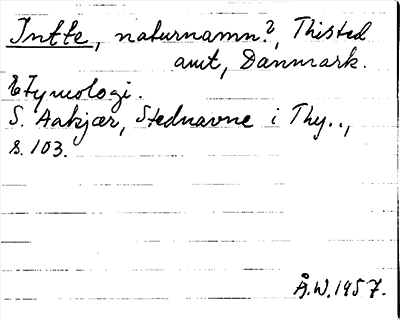 Tutte, naturnamn?, Thisted
amt, Danmark.
Etymologi.
S. Aakjær, Stednavne i Thy..,
s. 103.
Å.W. 1957.